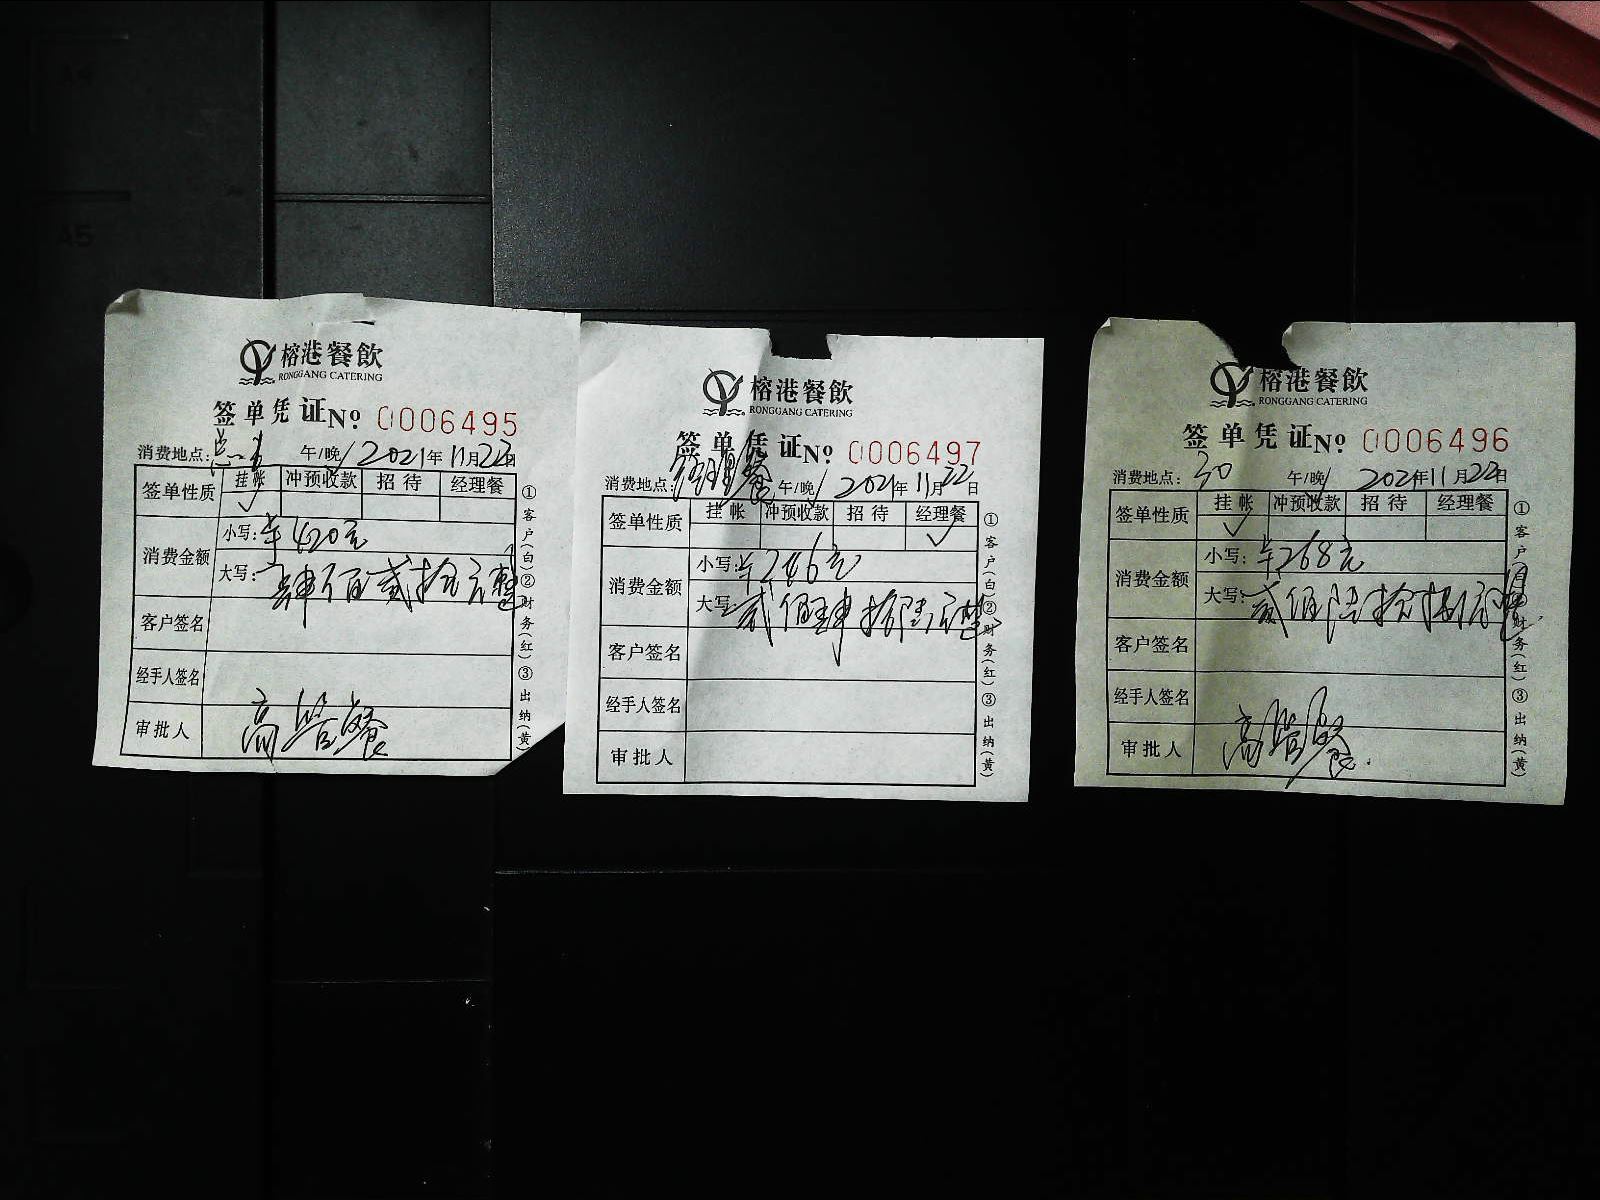 榕港餐飲
RONGGANG CATERING
签单凭证No 0006495
消费地点: 午/晚 2021年11月22日
签单性质 挂帐 冲预收款 招待 经理餐
✓
消费金额
小写: ¥420元
大写: 肆佰贰拾元整
客户签名
经手人签名
审批人 高管餐
①客户(白)②财务(红)③出纳(黄)
榕港餐飲
RONGGANG CATERING
签单凭证No 0006497
消费地点: 经理餐 午/晚 2021年11月22日
签单性质 挂帐 冲预收款 招待 经理餐
✓
消费金额
小写: ¥246元
大写: 贰佰肆拾陆元整
客户签名
经手人签名
审批人
①客户(白)②财务(红)③出纳(黄)
榕港餐飲
RONGGANG CATERING
签单凭证No 0006496
消费地点: 30 午/晚 2021年11月22日
签单性质 挂帐 冲预收款 招待 经理餐
✓
消费金额
小写: ¥268元
大写: 贰佰陆拾捌元整
客户签名
经手人签名
审批人 高管餐
①客户(白)②财务(红)③出纳(黄)
A4
A5